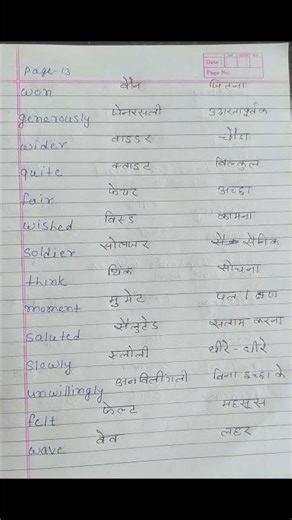 Date :
Page No.
Page-13
won वौन जितना
generously जेनरसली उदारतापूर्वक
wider वाइडर चौड़ा
quite क्वाइट बिल्कुल
fair फेयर अच्छा
wished विस्ड कामना
soldier सोल्जर सैनिक
think थिंक सोचना
moment मुमेंट पल / क्षण
saluted सैलुटेड सलाम करना
slowly स्लोली धीरे-धीरे
unwillingly अनविलींगली बिना इच्छा के
felt फेल्ट महसूस
wave वेव लहर